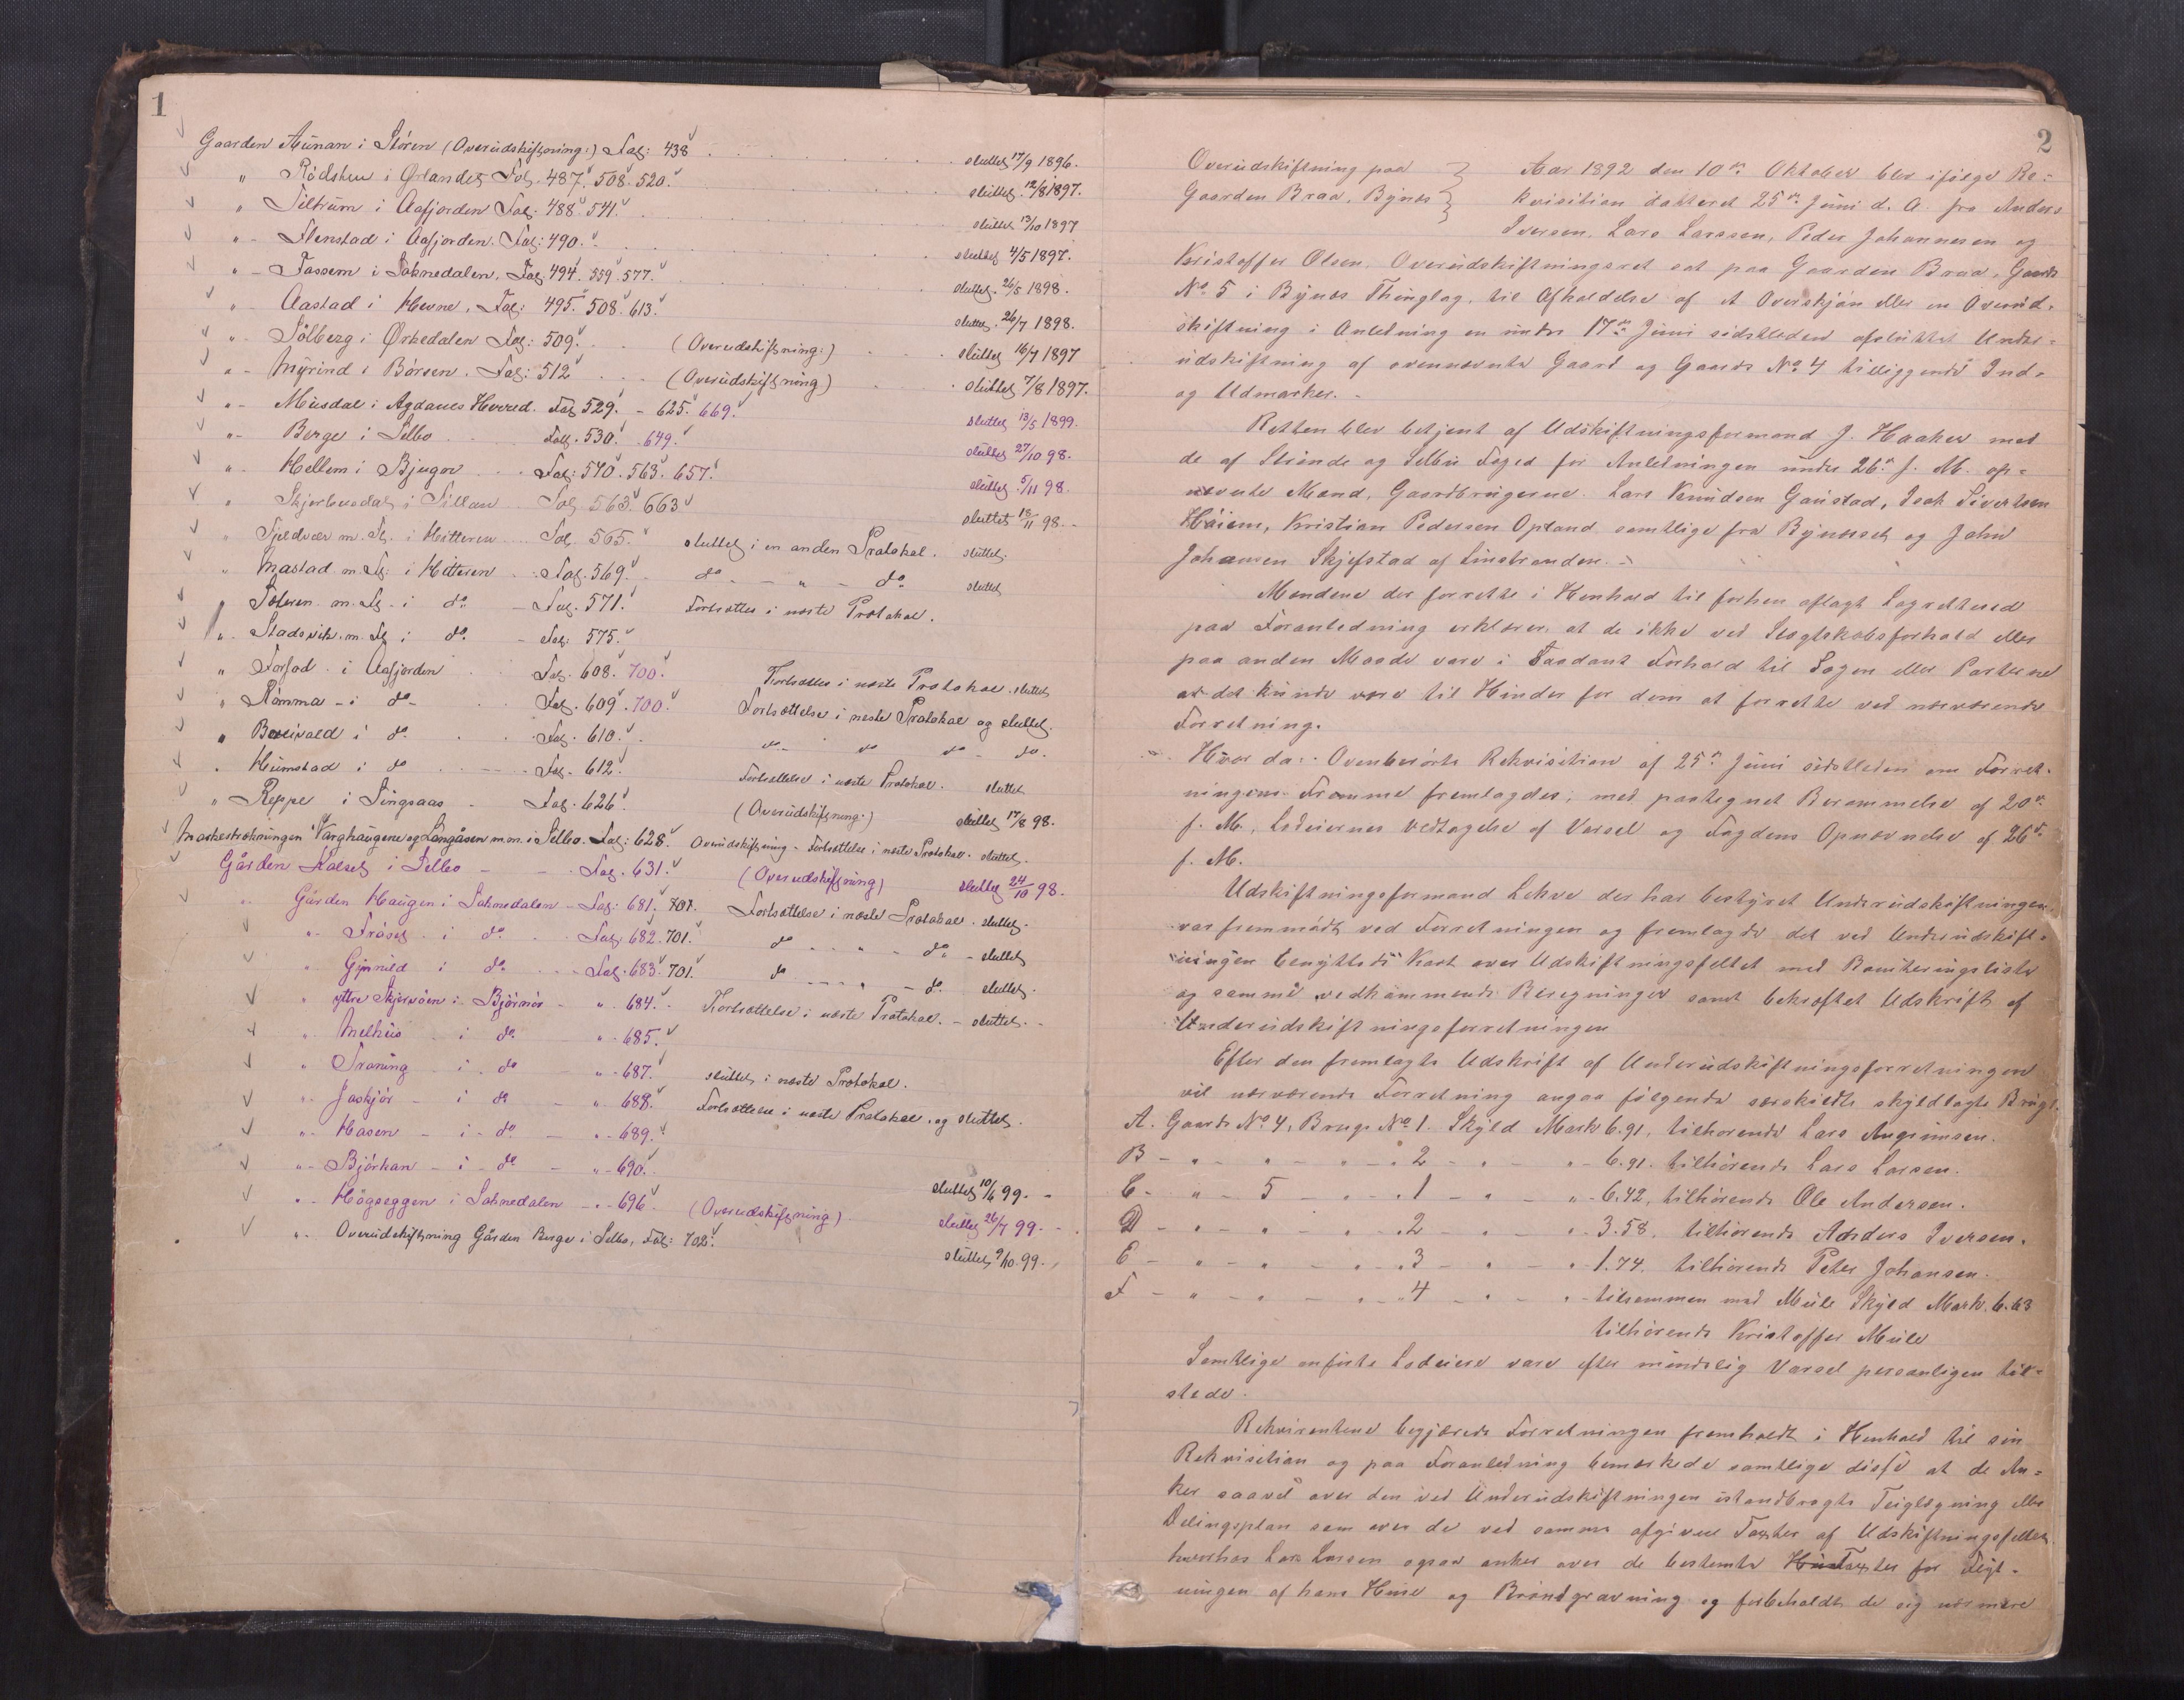 1
Gaarden Aunan i Støren (Overudskiftning:) Fol: 438 sluttet 17/9 1896.
" Rødsten i Ørlandet Fol. 487. 508. 520. sluttet 12/8 1897.
" Teltrum i Aafjorden Fol: 488. 541. sluttet 13/10 1897
" - Stenstad i Aafjorden. Fol: 490. sluttet 4/5 1897.
" - Fossem i Soknedalen. Fol. 494. 559. 577. sluttet. 26/5 1898.
" - Aastad i Hevne. Fol: 495. 508. 613. sluttet. 26/7 1898.
" - Solberg i Ørkedalen Fol: 509. (Overudskiftning:) sluttet 16/7 1897
" - Myrind i Børsen. Fol: 512 (Overudskiftning) sluttet 7/8 1897.
" - Musdal i Agdanes Herred. Fol 529. - 625. 669. sluttet 13/5 1899.
" - Berge i Selbo Fol. 530. - 649. sluttet 27/10 98.
" - Hellem i Bjugn Fol: 540. 563. 657. sluttet. 5/11 98.
" Skjerbusdal i Fillan Fol 563. 663 sluttet 18/11 98. -
" Fjeldvær m. Fl. i Hitteren Fol. 565. sluttet i en anden Protokol. sluttet.
" Mastad m. Fl: i Hitteren Fol. 569. do - " - do. sluttet
" m. Fl - i do - Fol. 571. Fortsættes i næste Protokol.
" - Stadsvik. m. Fl i do. - Fol: 575.
" Forfod i Aafjorden Fol. 608. 700. Fortsættes i næste Protokol. sluttet
" Rømma - i do - Fol. 609. 700. Fortsættelse i næste Protokol og sluttet.
" i do. Fol. 610. do - do do - do.
" Humstad i do Fol. 612. Fortsættelse i næste Protokol. sluttet
" Reppe i Singsaas - Fol. 626. (Overudskiftning:) sluttet 17/8 98.
Varghaugene og Langåsen m.m. i Selbo. Fol: 628. Overudskiftning - Fortsættelse i næste Protokol. sluttet.
Gården Kalset i Selbo - - Fol. 631. (Overudskiftning) sluttet 24/10 98.
" Gården Haugen i Soknedalen - Fol: 681. 701. Fortsættelse i næste Protokol. sluttet.
" - Frøset i do. Fol. 682. 701. do - - " - do - sluttet
" Gynnild i do. - Fol. 683. 701. do - - - do. sluttet.
" ytre Skjervøen i Bjørnør - " 684. - Fortsættelse i næste Protokol. - sluttet. -
" Melhus i do. " - 685.
" Traning i. do " - 687. sluttet i næste Protokol.
" - Jøskjør - i do - " 688. Fortsættelse i næste Protokol. og sluttet.
" - Hasen - i - do. - " - 689.
" - Bjørkan - i - do - " - 690. sluttet 10/6 99. -
" - Høgseggen i Soknedalen - " - 696 (Overudskiftning) sluttet 26/7 99. -
" - Overudskiftning Gården Berge i Selbo, Fol: 702. sluttet 9/10. 99. -
2
Overudskiftning paa
Gaarden Braa, Bynes
Aar 1892 den 10de Oktober blev ifølge Re=
kvisition datteret 25de Juni d. A. fra Anders
Iversen, Lars Larssen, Peder Johannesen og
Kristoffer Olsen. Overudskiftningsret sat paa Gaarden Braa, Gaards
No. 5 i Bynes Thinglag, til Afholdelse af et Overskjøn eller en Overud=
skiftning i Anledning en under 17de Juni sidstleden afsluttet Under=
udskiftning af ovennævnte Gaard og Gaards No. 4 tilliggende Ind=
og Udmarker. -
Retten blev betjent af Udskiftningsformand J. Haaker med
de af Strinde og Selbu Foged for Anledningen under 26de f. M. op=
nævnte Mænd, Gaardbrugerne. Lars Knudsen Gaustad, Isak Sivertsen
Høiem, Kristian Pedersen Opland samtlige fra Bynesset og John
Johansen Skjefstad af Leinstranden. -
Mændene der forrette i Henhold til forhen aflagt Lagretteed
paa Foranledning erklærer, at de ikke ved Slægtskabsforhold eller
paa anden Maade vare i saadant Forhold til Sagen eller Parterne
at det kunde være til Hinder for dem at forrette ved nærværende
Forretning.
Hvor da: Ovenberørte Rekvisition af 25de Juni sidstleden om Forret=
ningens Fremme fremlagdes, med paategnet Berammelse af 20de
f. M., Lodeiernes Vedtagelse af Varsel og Fogdens Opnævnelse af 26de
f. M.
Udskiftningsformand Lehve der har bestyret Underudskiftningen
var fremmødt ved Forretningen og fremlagde det ved Underudskift=
ningen benyttede Kart over Udskiftningsfeltet med Boniteringsliste
og samme vedkommende Beregninger samt bekræftet Udskrift af
Underudskiftningsforretningen
Efter den fremlagte Udskrift af Underudskiftningsforretningen
vil nærværende Forretning angaa følgende særskildte skyldlagte Brug:
A. Gaards No. 4, Brugs No. 1. Skyld Mark 6.91, tilhørende Lars Angrimsen.
B - " - " - " 2 - " - " - 6.91. tilhørende Lars Larsen.
C - " - 5 - " 1 - " - " - 6.42, tilhørende Ole Andersen.
D - " - " - " 2 - " - " - 3.58, tilhørende Anders Iversen.
E - " - " - " 3 - " - " - 1.74. tilhørende Peter Johansen.
F - " - " - " 4 - " - " - tilsammen med Mule Skyld Mark. 6.63
tilhørende Kristoffer Mule
Samtlige anførte Lodeiere vare efter mundtlig Varsel personligen til=
stede.
Rekvirentene begjærede Forretningen fremholdt i Henhold til sin
Rekvisition og paa Foranledning bemærkede samtlige disse at de An=
ker saavel over den ved Underudskiftningen istandbragte Teiglægning eller
Delingsplan som over de ved samme afgivne Taxter af Udskiftningsfeltet
hvorhos Lars Larsen ogsaa anker over de bestemte Taxter for Flyt=
ningen af hans Huse og Brøndgravning og forbeholdt de sig nærmere